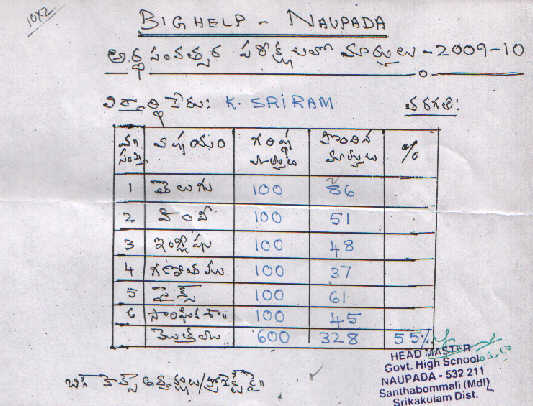 10K2
BIGHELP - NAUPADA
అర్థ సంవత్సర పరీక్షలలో మార్కులు - 2009-10
విద్యార్థి పేరు: K. SRIRAM తరగతి:
వ. సంఖ్య విషయం గరిష్ట మార్కులు పొందిన మార్కులు %
1 తెలుగు 100 86
2 హిందీ 100 51
3 ఇంగ్లీషు 100 48
4 గణితము 100 37
5 సైన్స్ 100 61
6 సాంఘిక శా 100 45
మొత్తము 600 328 55%
HEAD MASTER
Govt. High School
NAUPADA - 532 211
Santhabommali (Mdl)
Srikakulam Dist.